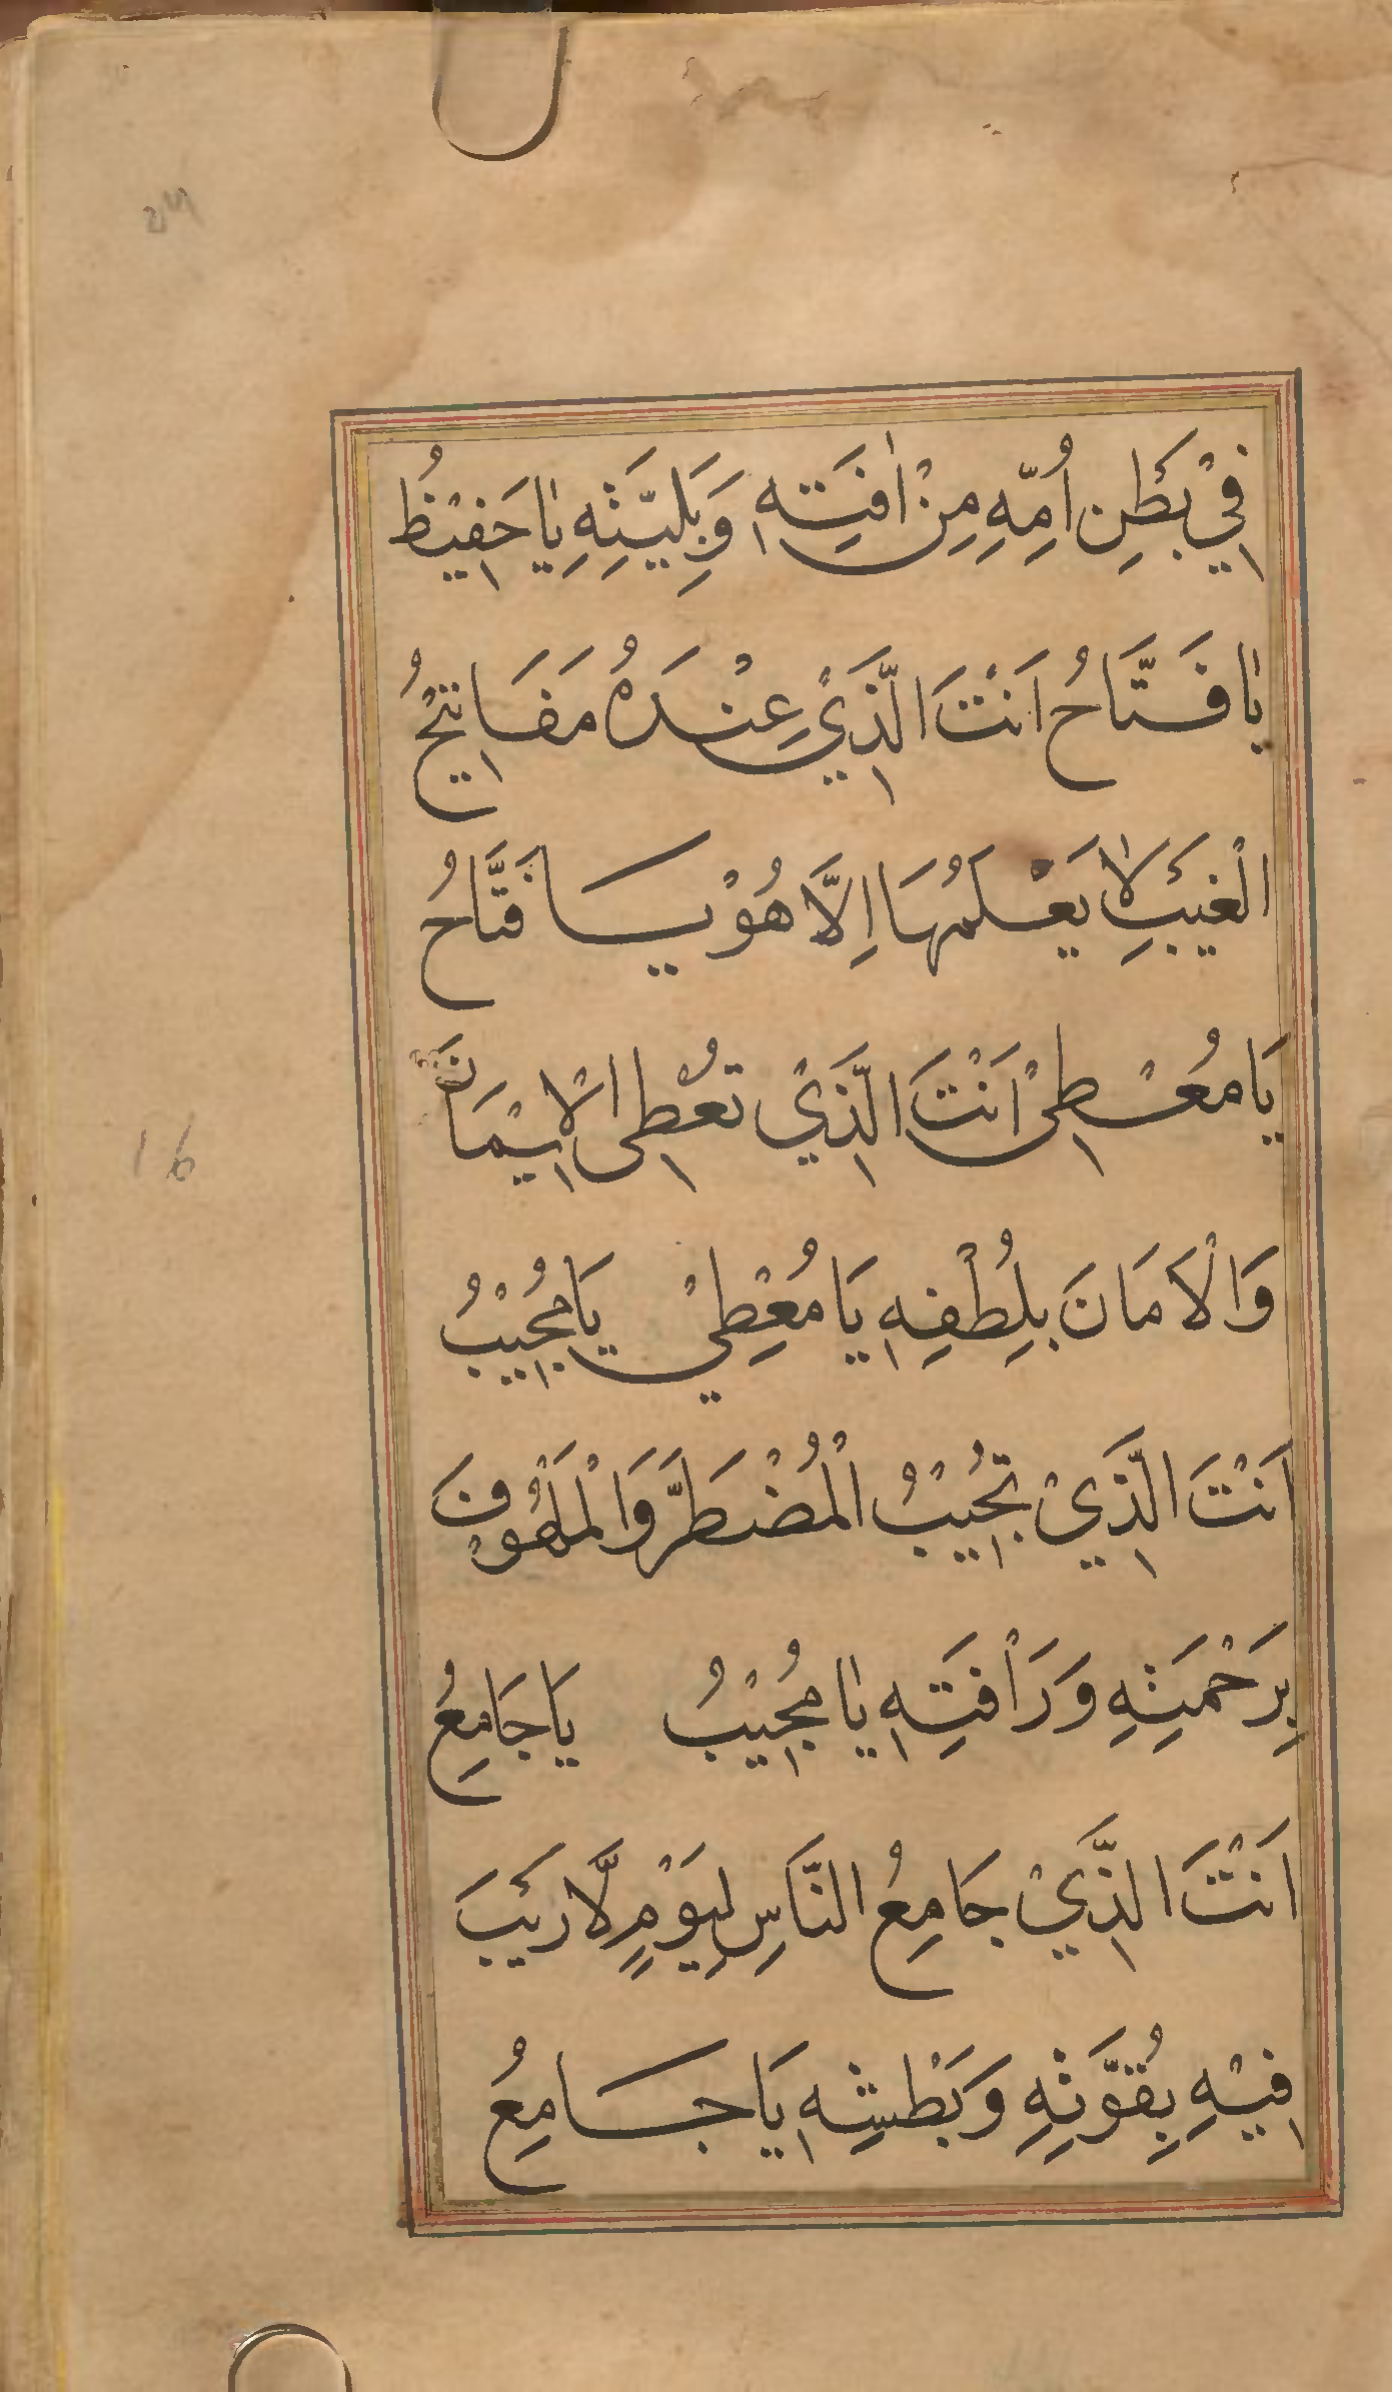 فِيْ بَطْنِ اُمِّهِ مِنْ اٰفَتِهٖ وَبَلِيَّتِهِ يَا حَفِيْظُ
يَا فَتَّاحُ اَنْتَ الَّذِيْ عِنْدَهُ مَفَاتِيْحُ
الْغَيْبِ لَا يَعْلَمُهَا اِلَّا هُوْ يَا فَتَّاحُ
يَا مُعْطِيْ اَنْتَ الَّذِيْ تُعْطِى الْاِيْمَانَ
وَالْاَمَانَ بِلُطْفِهٖ يَا مُعْطِيْ يَا مُجِيْبُ
اَنْتَ الَّذِيْ تُجِيْبُ الْمُضْطَرَّ وَالْمَلْهُوْفَ
بِرَحْمَتِهِ وَرَاْفَتِهٖ يَا مُجِيْبُ يَا جَامِعُ
اَنْتَ الَّذِيْ جَامِعُ النَّاسِ لِيَوْمٍ لَّا رَيْبَ
فِيْهِ بِقُوَّتِهِ وَبَطْشِهٖ يَا جَامِعُ
16